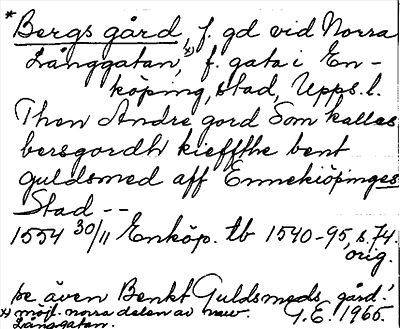 * Bergs gård, f. gd vid Norra
Långgatan,x) f. gata i En-
köping, stad, Upps. l.
Then Andre gord Som kallas
bersgordh kieffthe bent
guldsmed aff Ennekiöpinges
Stad --
1554 30/11 Enköp. tb 1540-95, s. 74.
orig.
se även Benkt Guldsmeds gård!
x) möjl. norra delen av nuv. G.E. 1965.
Långgatan.